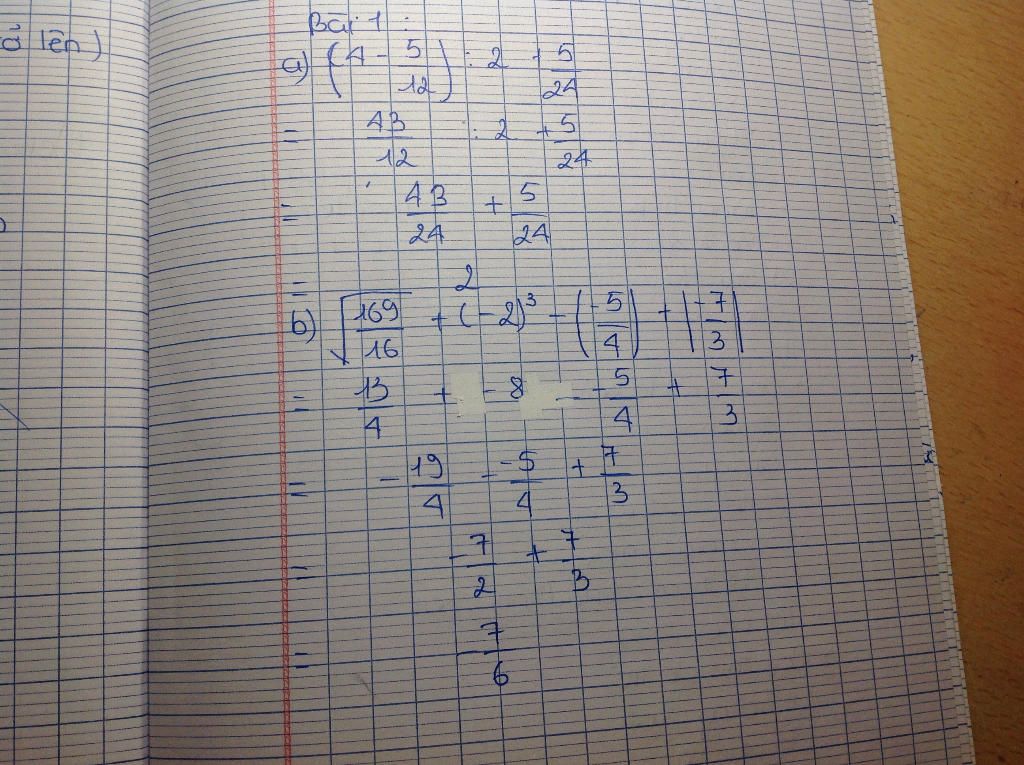 ở lên)
Bài 1 :
a) (4 - 5/12) : 2 + 5/24
= 43/12 : 2 + 5/24
= 43/24 + 5/24
= 2
b) √(169/16) + (-2)³ - (-5/4) + |-7/3|
= 13/4 + -8 - -5/4 + 7/3
= -19/4 - -5/4 + 7/3
= -7/2 + 7/3
= -7/6